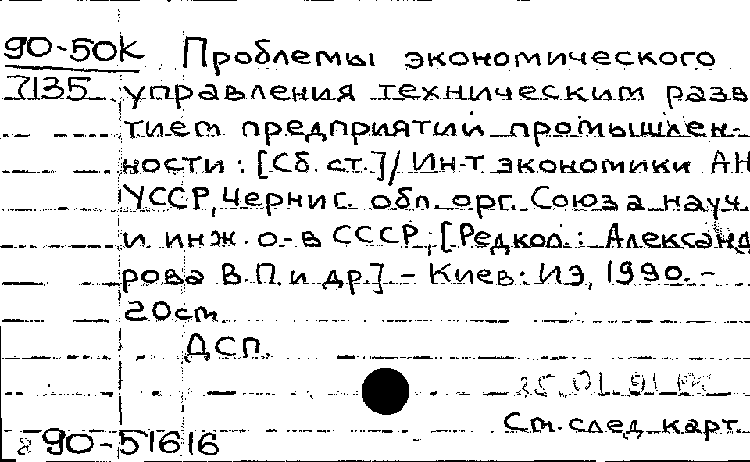 90-50К Проблемы экономического
7135 управления техническим разв
тием предприятий промышлен-
ности : [Сб. ст.] / Ин-т экономики АН
УССР, Черниг. обл. орг. Союза науч.
и инж. о-в СССР; [Редкол.: Александ
рова В.П. и др.] – Киев: ИЭ, 1990. –
20 см
ДСП.
25.01.91
См. след. карт.
90-51616